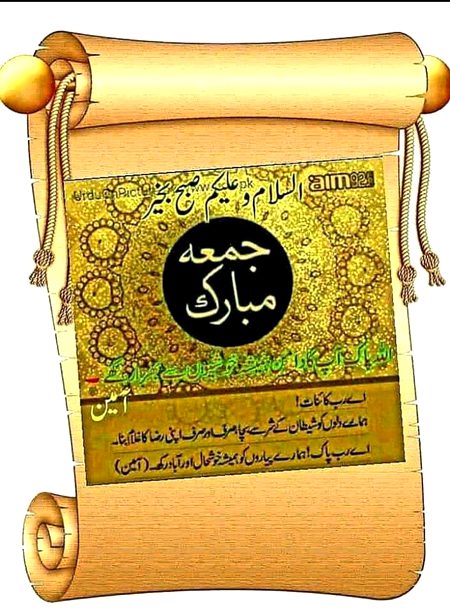 السلام و علیکم صبح بخیر
aim
جمعہ
مبارک
اللہ پاک آپ کا دامن ہمیشہ خوشیوں سے بھرا رکھے
آمین
اے رب کائنات!
ہمارے دلوں کو شیطان کے شر سے بچا، صرف اور صرف اپنی رضا کا غلام بنا۔۔
اے رب پاک! ہمارے پیاروں کو ہمیشہ خوشحال اور آباد رکھ۔ (آمین)